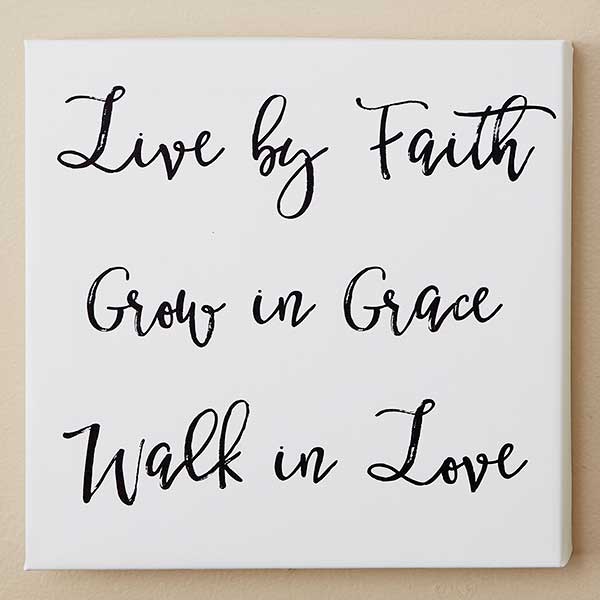 Live by Faith
Grow in Grace
Walk in Love